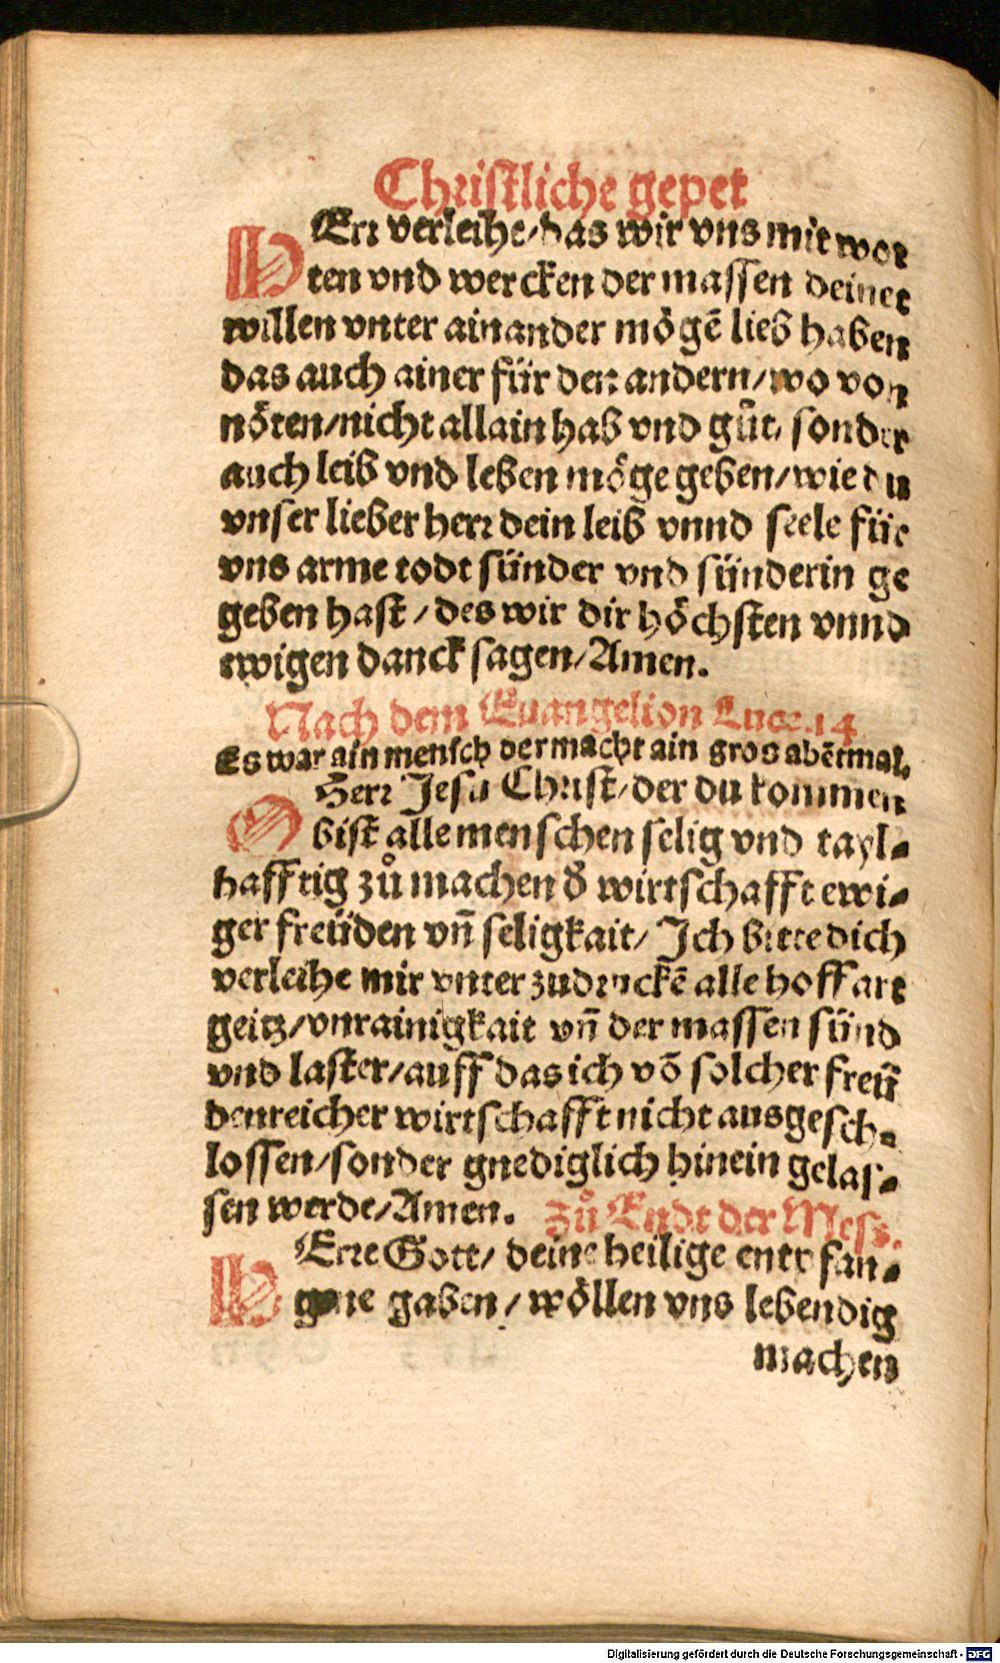 Christliche gepet
HErr verleihe/das wir vns mit wor
ten vnd wercken der massen deinet
willen vnter ainander mögē lieb haben
das auch ainer für den andern/wo von
nöten/nicht allain hab vnd gůt/ sonder
auch leib vnd leben möge geben/wie du
vnser lieber herr dein leib vnnd seele für
vns arme todt sünder vnd sünderin ge
geben hast/des wir dir höchsten vnnd
ewigen danck sagen/Amen.
Nach dem Euangelion Luce.14
Es war ain mensch der macht ain gros abētmal.
O Herr Jesu Christ/der du kommen
bist alle menschen selig vnd tayl-
hafftig zů machen d̄ wirtschafft ewi-
ger freüden vn̄ seligkait/ Ich bitte dich
verleihe mir vnter zudruckē alle hoffart
geitz/vnrainigkait vn̄ der massen sünd
vnd laster/auff das ich vō solcher freü
denreicher wirtschafft nicht ausgesch-
lossen/sonder gnediglich hinein gelas-
sen werde/Amen. Zů Endt der Mess.
HErre Gott/ deine heilige entpfan-
gene gaben/wöllen vns lebendig
machen
Digitalisierung gefördert durch die Deutsche Forschungsgemeinschaft - DFG